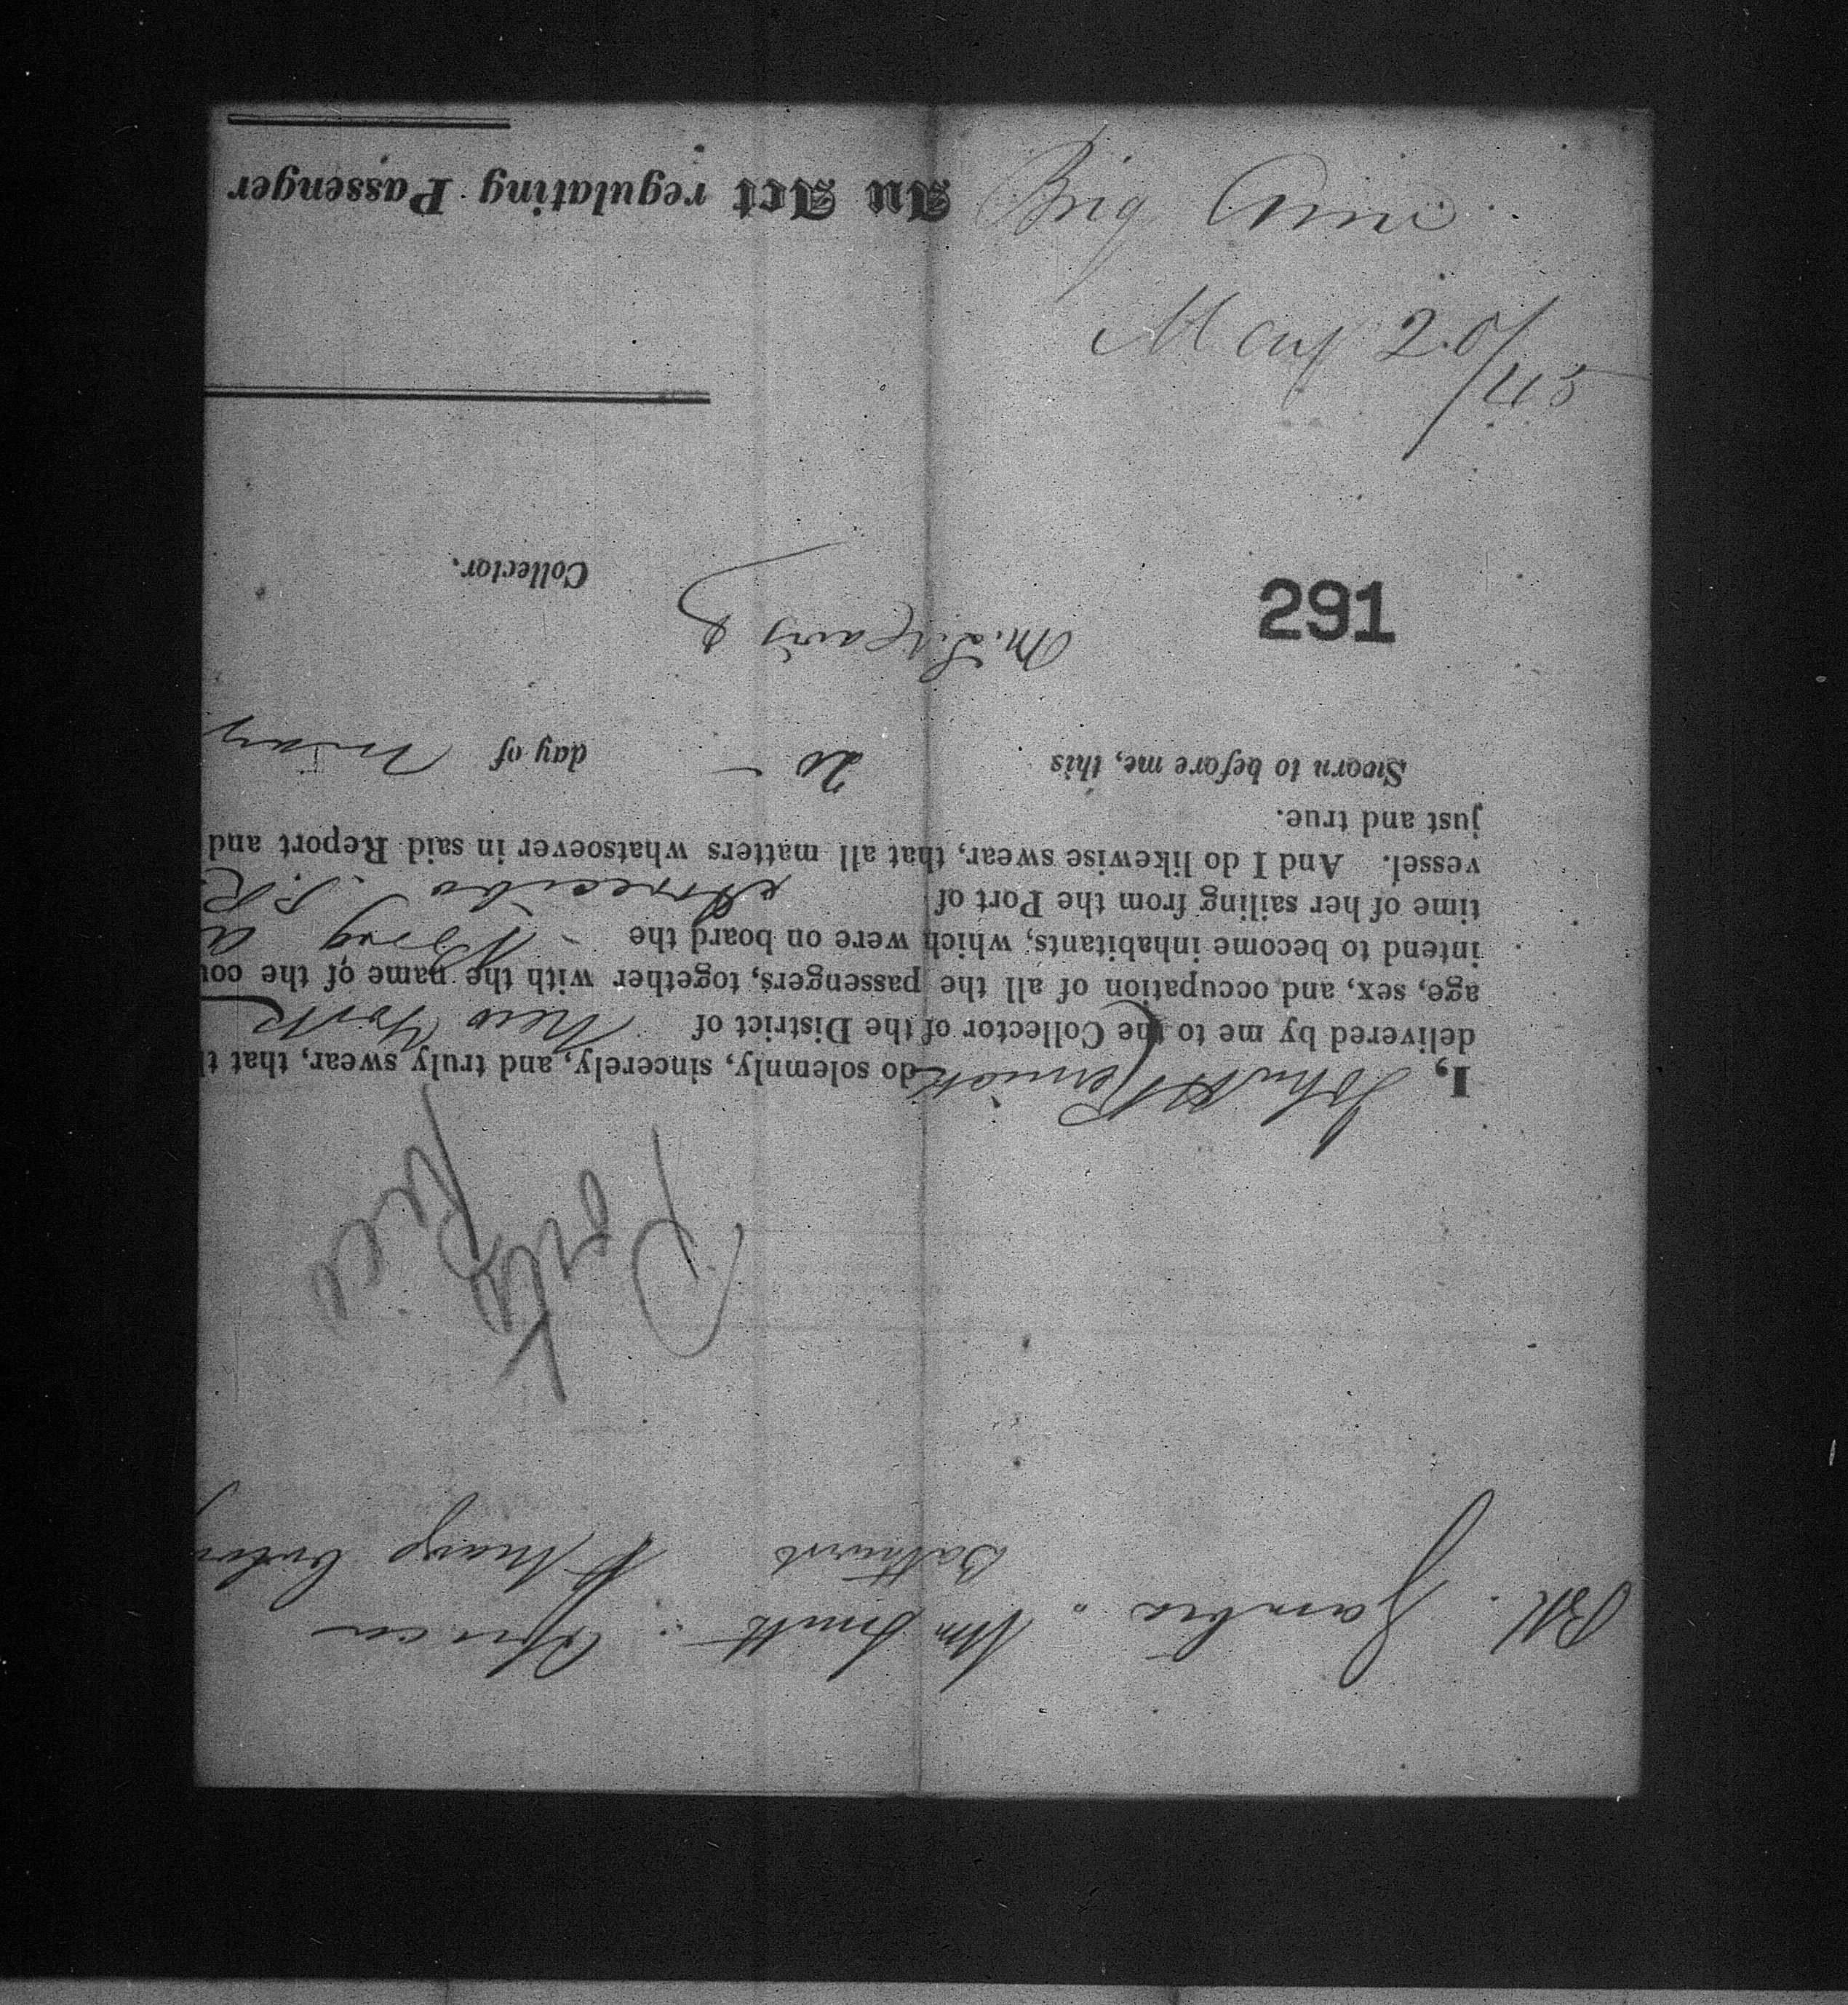 Brig
May 20/
/45
291
An Act regulating Passenger
Collector.
Sworn to before me, this 20 day of May
just and true.
vessel. And I do likewise swear, that all matters whatsoever in said Report and
time of her sailing from the Port of Arecibo P.R.
intend to become inhabitants, which were on board the Brig A
age, sex, and occupation of all the passengers, together with the name of the cou
delivered by me to the Collector of the District of New York
I, John do solemnly, sincerely, and truly swear, that t
Porto
Rico
Bathurst Mary
Gambia Wm Smith Africa